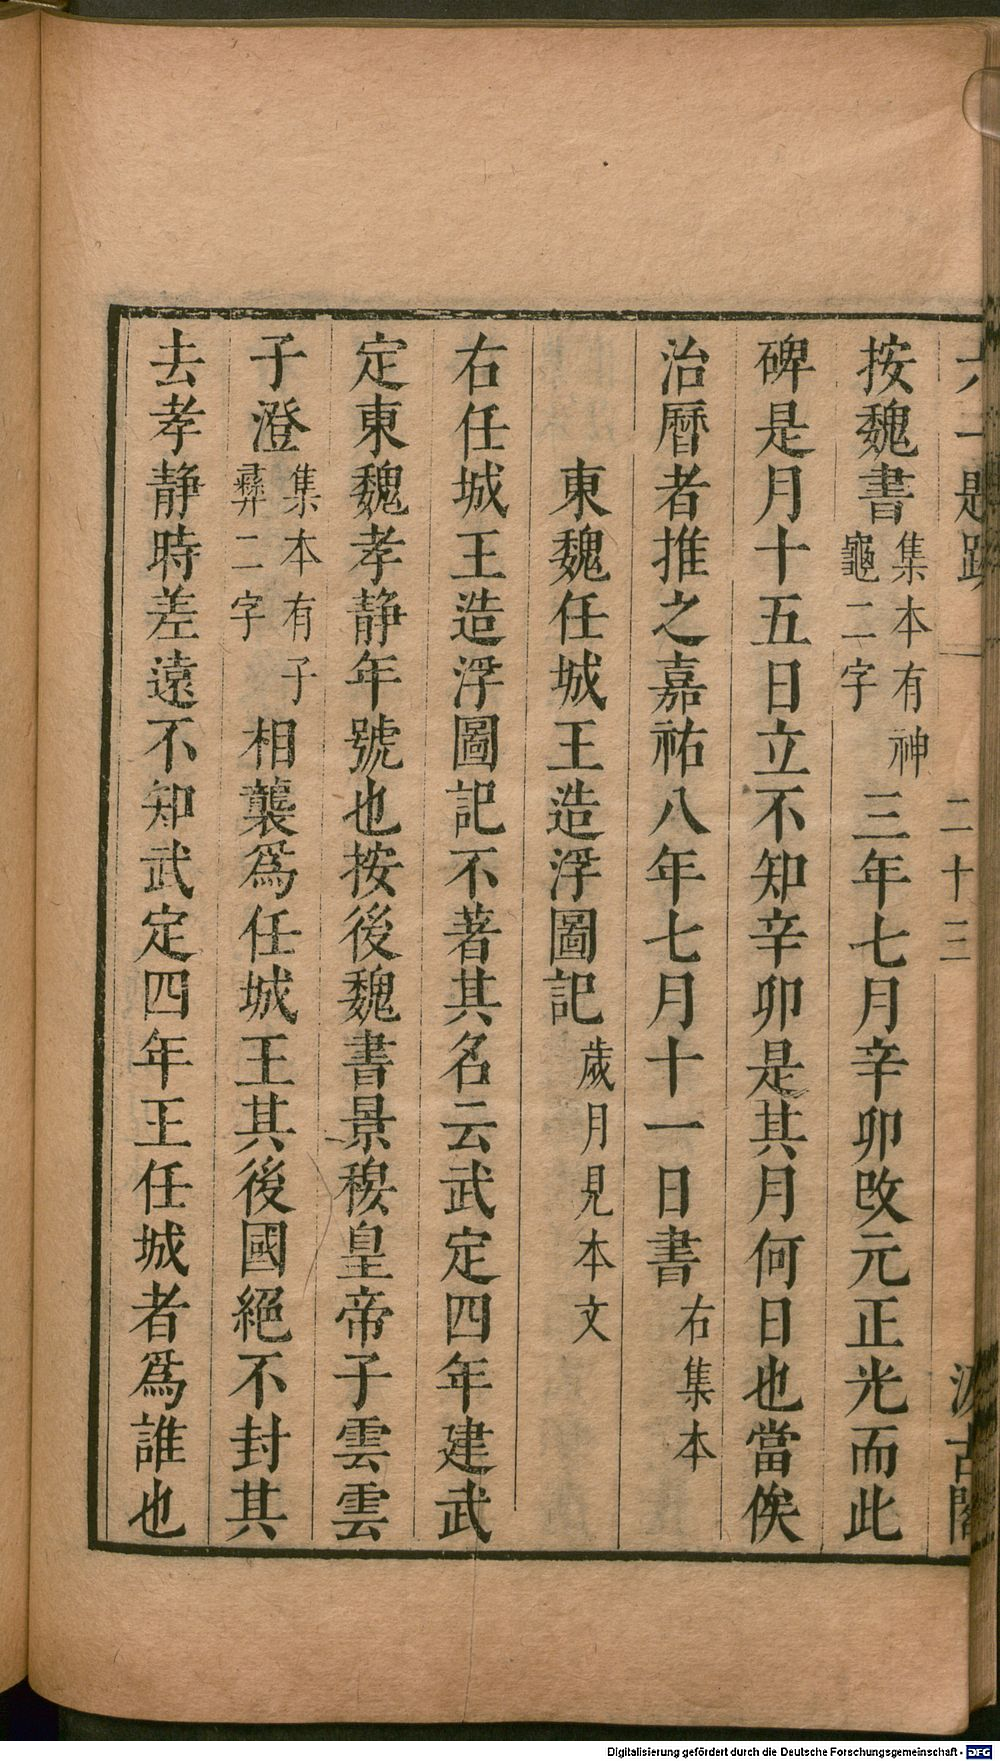 六一題跋 二十三 汲古閣
按魏書集本有神龜二字三年七月辛卯改元正光而此
碑是月十五日立不知辛卯是其月何日也當俟
治曆者推之嘉祐八年七月十一日書右集本
東魏任城王造浮圖記歲月見本文
右任城王造浮圖記不著其名云武定四年建武
定東魏孝静年號也按後魏書景穆皇帝子雲雲
子澄集本有子彞二字相襲爲任城王其後國絕不封其
去孝静時差遠不知武定四年王任城者爲誰也
Digitalisierung gefördert durch die Deutsche Forschungsgemeinschaft - DFG